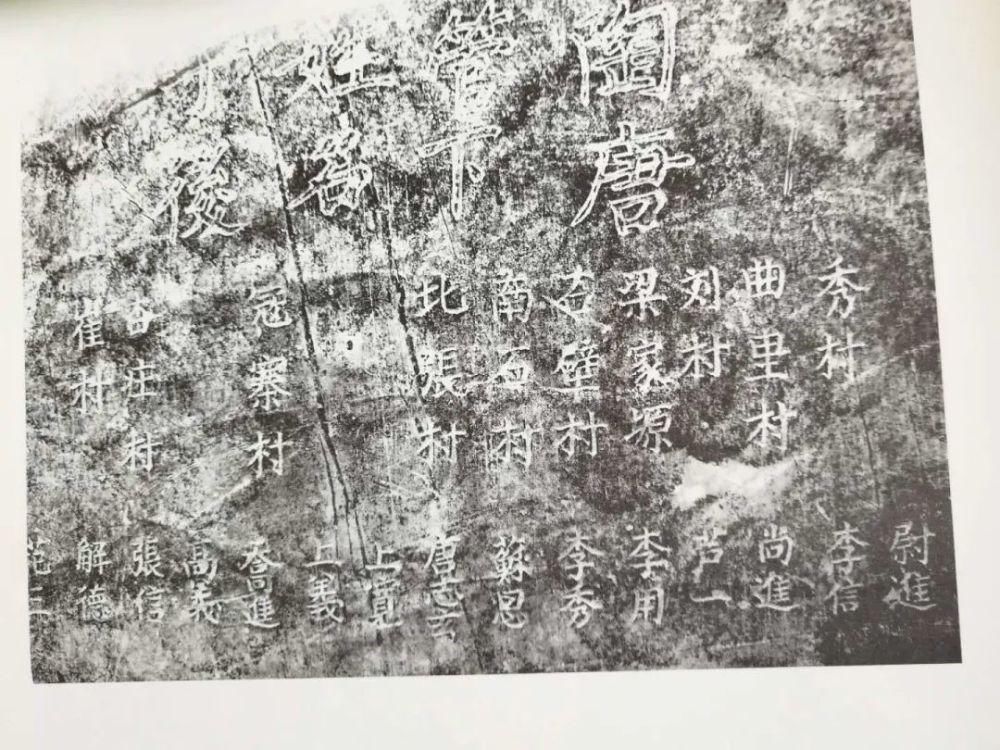 陶唐
管下
姓喬
後
秀村
曲里村
刘村
梁家源
石壁村
南石村
北張村
冦寨村
田庄村
崔村
尉進
李信
尚進
芦一
李用
李秀
蘇思
唐
上寛
上義
喬進
高義
張信
解德
范三